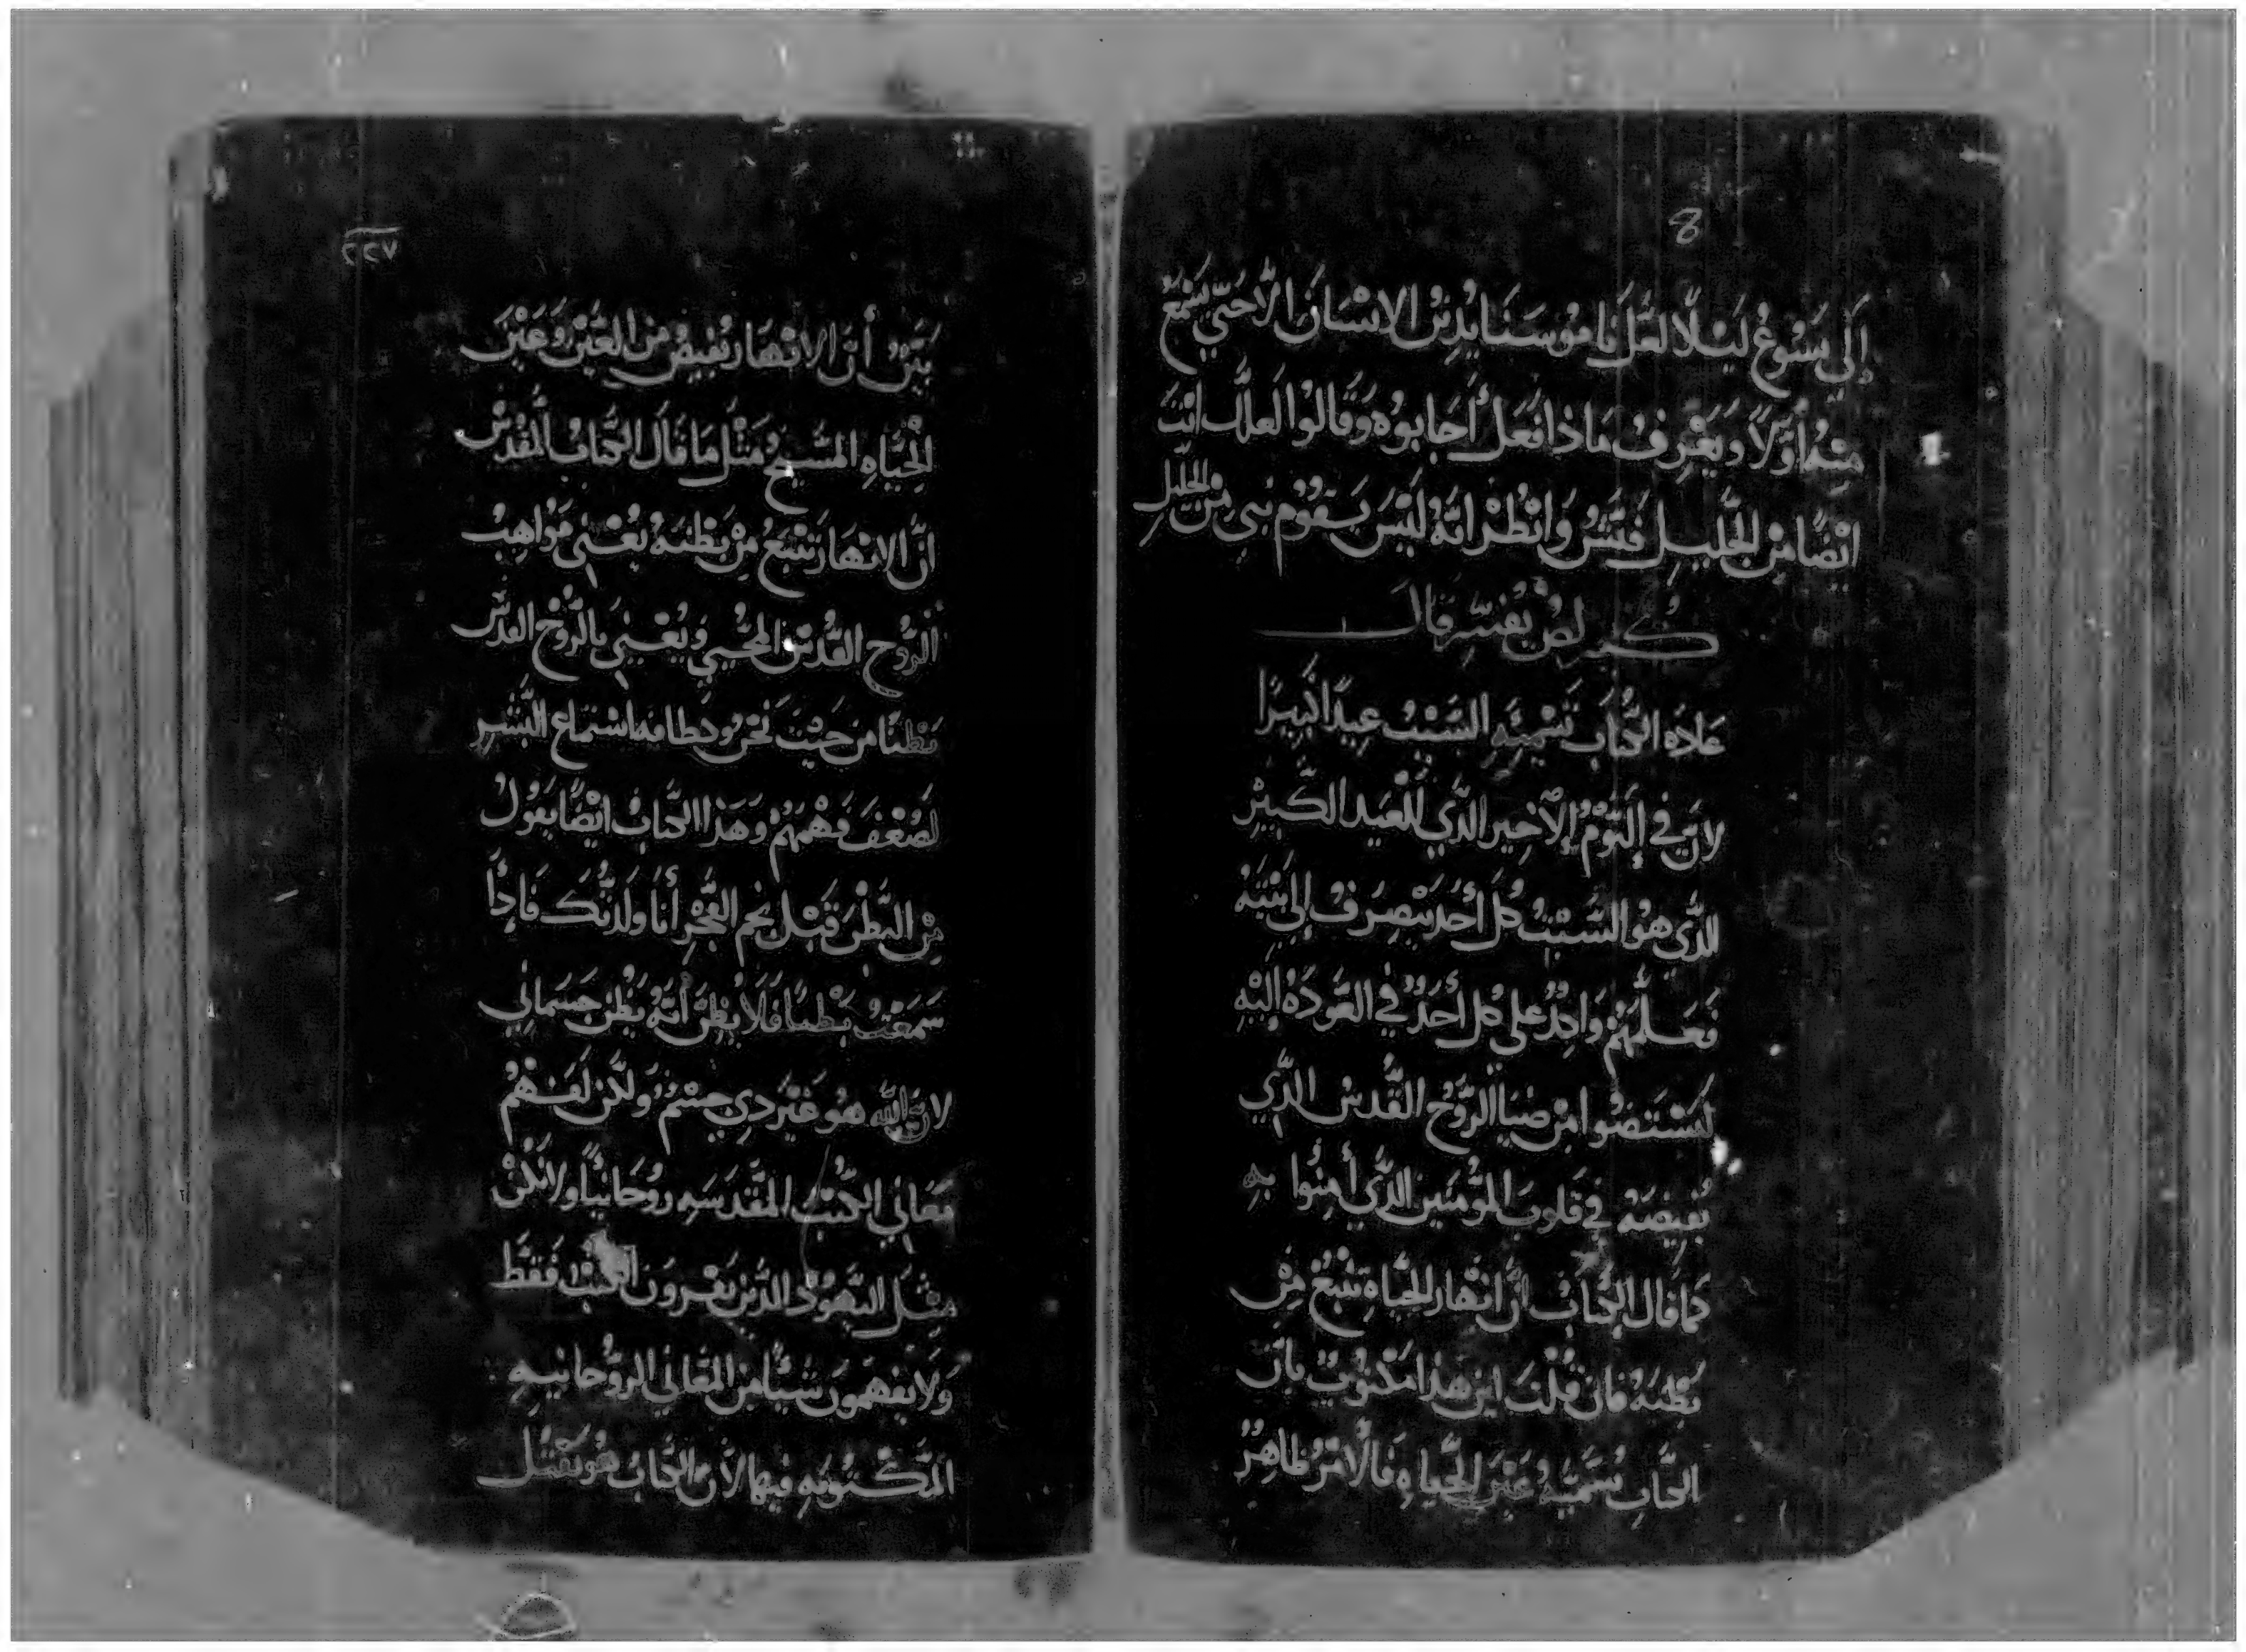 إلي يسوع ليلًا لعل ناموسنا يدين الانسان الا حتي يسمع
منه أولًا ويعرف ماذا فعل أجابوه وقالوا لعلك انت
ايضًا من الجليل فتش وانظر انه ليس يقوم نبي من الجليل
كيرلص يفسر قال
عادة الكتاب تسميه السبت عيدًا كبيرًا
لان في اليوم الاخير الذي للعيد الكبير
الذي هو السبت كل أحد ينصرف إلي بيته
فعلمهم واكد علي كل أحد في العوده إليه
ليستضوا من ضيا الروح القدس الذي
يفيضه في قلوب المؤمنين الذي أمنوا به
كما قال الكتاب ان انهار الحياه تنبع من
بطنه فان قلت اين هذا مكتوب بان
الكتاب يسميه عين الحياه فالامر ظاهر
٢٢٧
بين أن الانهار تفيض من العين وعين
الحياه المسيح مثل ما قال الكتاب المقدس
ان الانهار تنبع من بطنه يعني مواهب
الروح القدس المحيي ويعني بالروح القدس
بطنًا من حيث نحن استماع البشر
لضعف فهمهم وهذا الكتاب ايضًا يقول
من البطن قبل نجم الفجر أنا ولدتك فإذًا
سمعت بطنًا فلا يظن أنه بطن جسماني
لان الله هو غير دي جسم ولكن لنفهم
معاني الكتب المقدسه روحانيًا ولا نكن
مثل اليهود الذين يقرون الكتب فقط
ولا يفهمون شيئًا من المعاني الروحانيه
المكتوبه فيها لان الكتاب هو يقتل